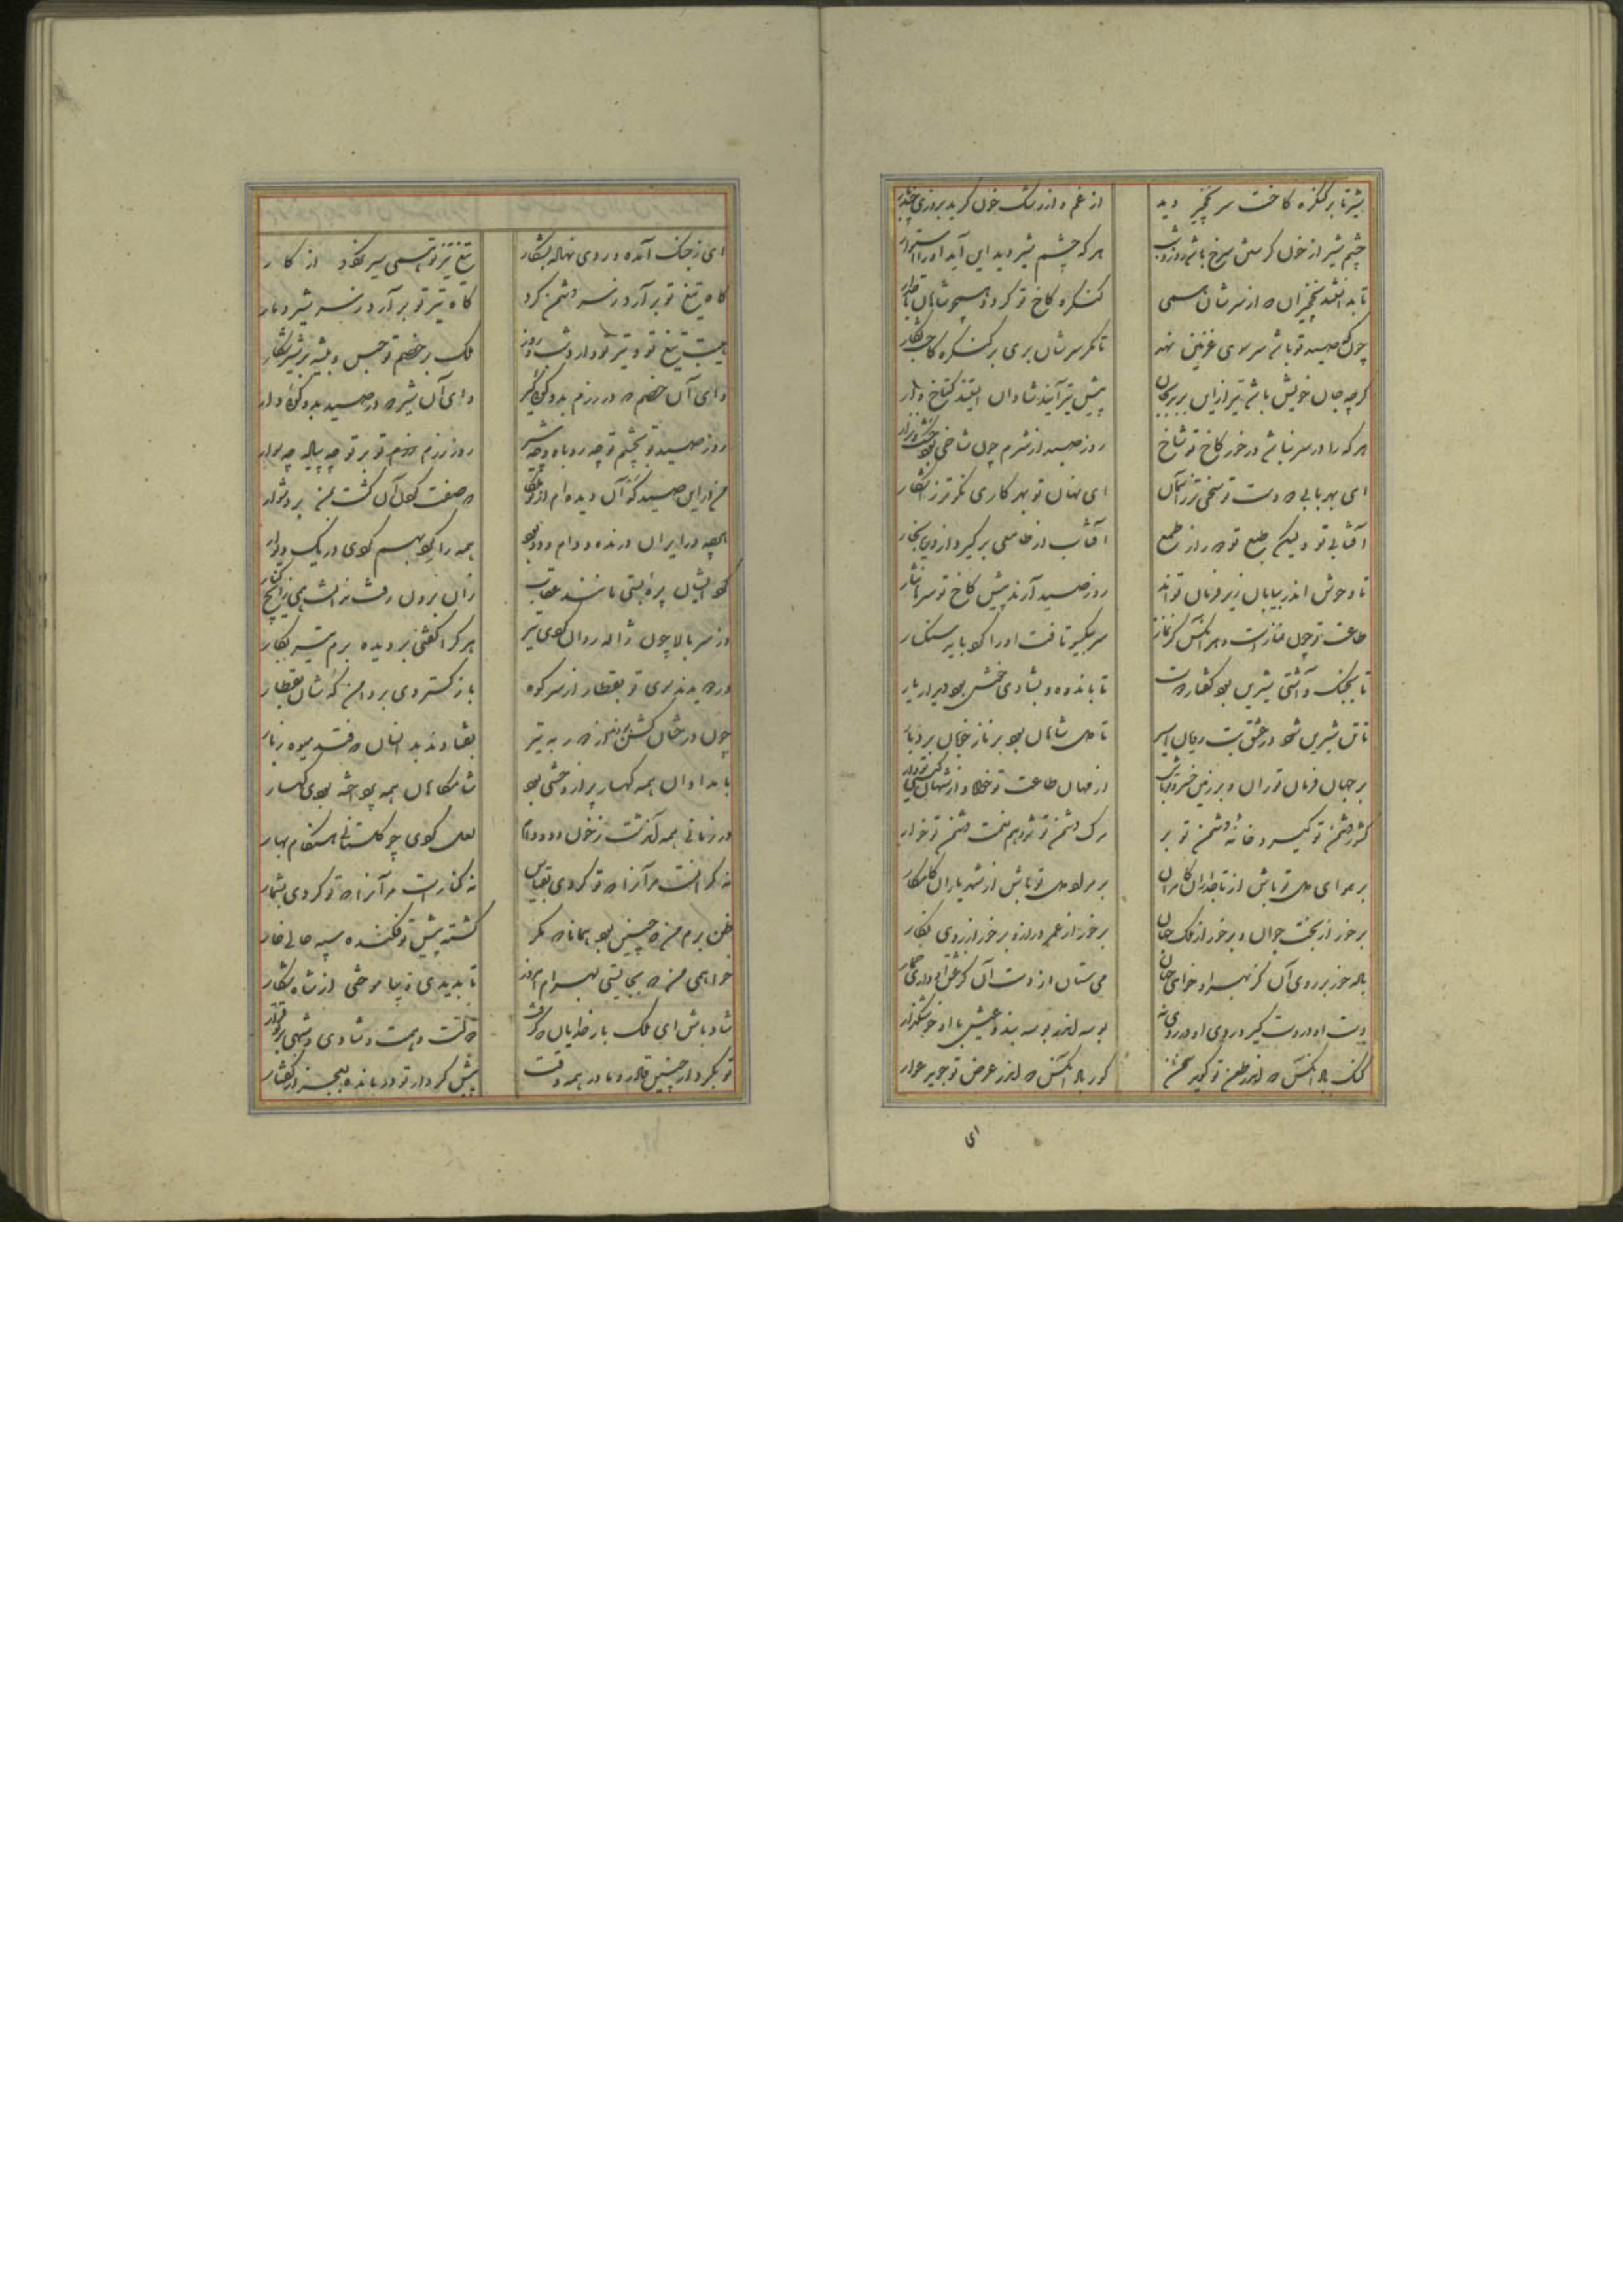 شیر تا بر کنگره کاخت سر نخجیر دید
از غم و از رشک خون گرید بروزی چند بار
چشم شیر از خون گرستن سرخ باشد روز و شب
هر که چشم شیر دید این آید او را استوار
تا بدانستند نخجیران که از سرشان همی
کنگره کاخ تو گردد همچو شاهان تاجدار
چون گه صید تو باشد سر سوی غزنین نهد
تا مگر سرشان بری بر کنگره کاخت بکار
گرچه جان خویش باشد
پیش تیر آیند شادان ایستند گستاخ وار
هر که را در سر نباشد در خور کاخ تو شاخ
روز صید از شرم چون شاخی بود
ای بهر بابی که دست تو سخی تر ز آسمان
ای نهان تو بهر کاری نکوتر ز آشکار
آفتابی تو ولیکن طبع تو دور از طمع
آفتاب از طامعی برگیرد از دریا بخار
تا وحوش اندر بیابان زیر فرمان تو اند
روز صید آرند پیش کاخ تو سرها نثار
طاعت تو چون نمازست و هر آنکس کز نماز
سر بیکسو تافت او را کرد باید سنگسار
تا بجنگ و آشتی شیرین بود گفتار دوست
تا باندوه و بشادی خوش بود دیدار یار
تا تن شیرین شود در عشق بت رویان اسیر
تا دل شاهان بود بر ناز خوبان بردبار
بر جهان فرمان تو ران و بر زمین خسرو تو باش
از مهان طاعت تو خواه و از شهان گیتی تو دار
کشور دشمن تو گیر و خانه دشمن تو بر
مرگ دشمن تو شو و هم نعمت دشمن تو خوار
بر هوای دل تو باش از تاجداران کامران
بر مراد دل تو باش از شهریاران کامگار
برخور از بخت جوان و برخور از ملک جهان
برخور از عمر دراز و برخور از روی نگار
باده خور بر روی آن کز بهر او خواهی جهان
می ستان از دست آن کز عشق او داری خمار
دست او در دست گیر و روی او در روی نه
بوسه اندر بوسه بند و عیش با او خوش گذار
گنگ باد آنکس که اندر طعن تو گوید سخن
کور باد آنکس که اندر عرض تو جوید عوار
ای
ای ز جنگ آمده و روی نهاده بشکار
تیغ و تیر تو همی سیر نگردد از کار
گاه تیغ تو بر آرد ز سر دشمن گرد
گاه تیر تو بر آرد ز سر شیر دمار
تیغ تو و تیر تو دارد شب و روز
ملک بر خصم تو حبس و بیشه بر شیر حصار
وای آن خصم که در رزم بدو گوئی گیر
وای آن شیر که در صید بدو گوئی دار
روز صید تو بچشم تو چه روباه و چه شیر
روز رزم تو بر تو چه پیاده چه سوار
من ازین صیدگه آن دیده ام از تو ملکا
که صفت کردن آن گشت بمن بر دشوار
هر چه در ایران درنده و دام و دد بود
همه را گرد بهم کردی در یک دیوار
گرد ایشان پره بستی تا شد عقاب
زان برون رفت ندانست همی زیچ کنار
وز سر بالا چون ژاله روان کردی تیر
هر کرا گفتی بردیده برم تیر بکار
در دویدند سوی تو بقطار از سر کوه
باز گستردی بر دامن که شان بقطار
چون درختان کشن بودند از دور به تیر
بفتادند بدانسان که فتد میوه ز بار
بامدادان همه کهسار پر از وحشی بود
شامگاهان همه پرداخته بودی کهسار
در زمانی همه که دشت ز خون دد و دام
لعل کردی چو گلستانی هنگام بهار
نه گرافست مر آنرا که تو کردی بقیاس
نه کنارست مر آنرا که تو کردی بشمار
ظن برم من که چنین بود همانا که مگر
کشته پیش تو فکنده سپه خانی خار
خواهمی من که بجایستی بهرام امروز
تا بدیدی و بیاموختی از شاه شکار
شاد باش ای ملک بار خدایان که گرفت
دولت و همت و شادی و شهی بر تو قرار
تو بکردار چنین قادر و ما در همه وقت
پیش کردار تو درمانده بعجز از گفتار